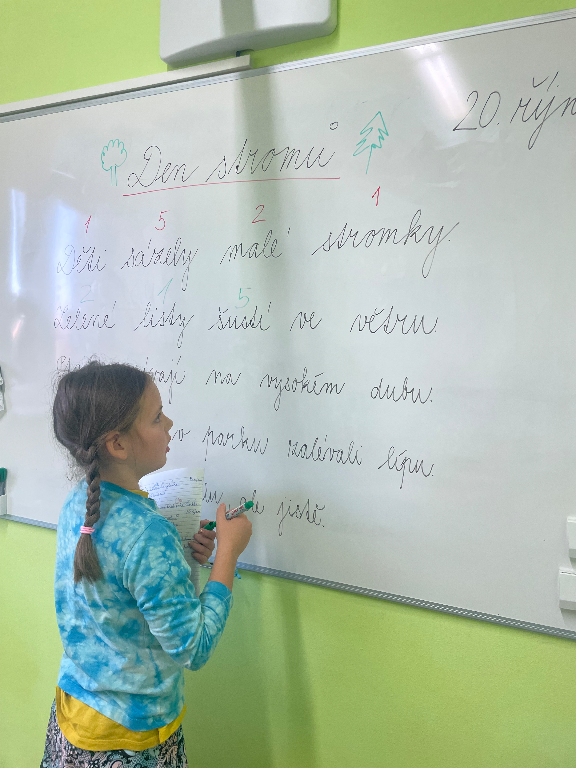 20. říjn
Den stromů
1 5 2 1
Děti sázely malé stromky.
2 1 5
Zelené listy šustí ve větru.
vají na vysokém dubu.
v parku zalévali lípu.
ale jistě.